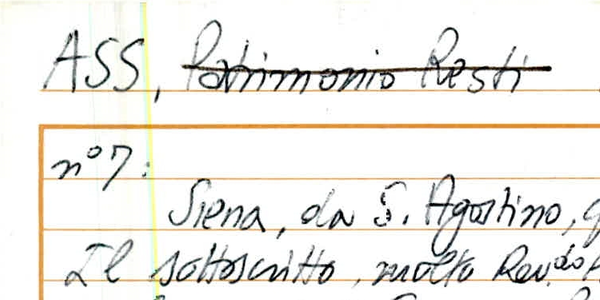 ASS, Patrimonio Resti
n° 7:
Siena, da S. Agostino,
Il sottoscritto, molto Rev.do